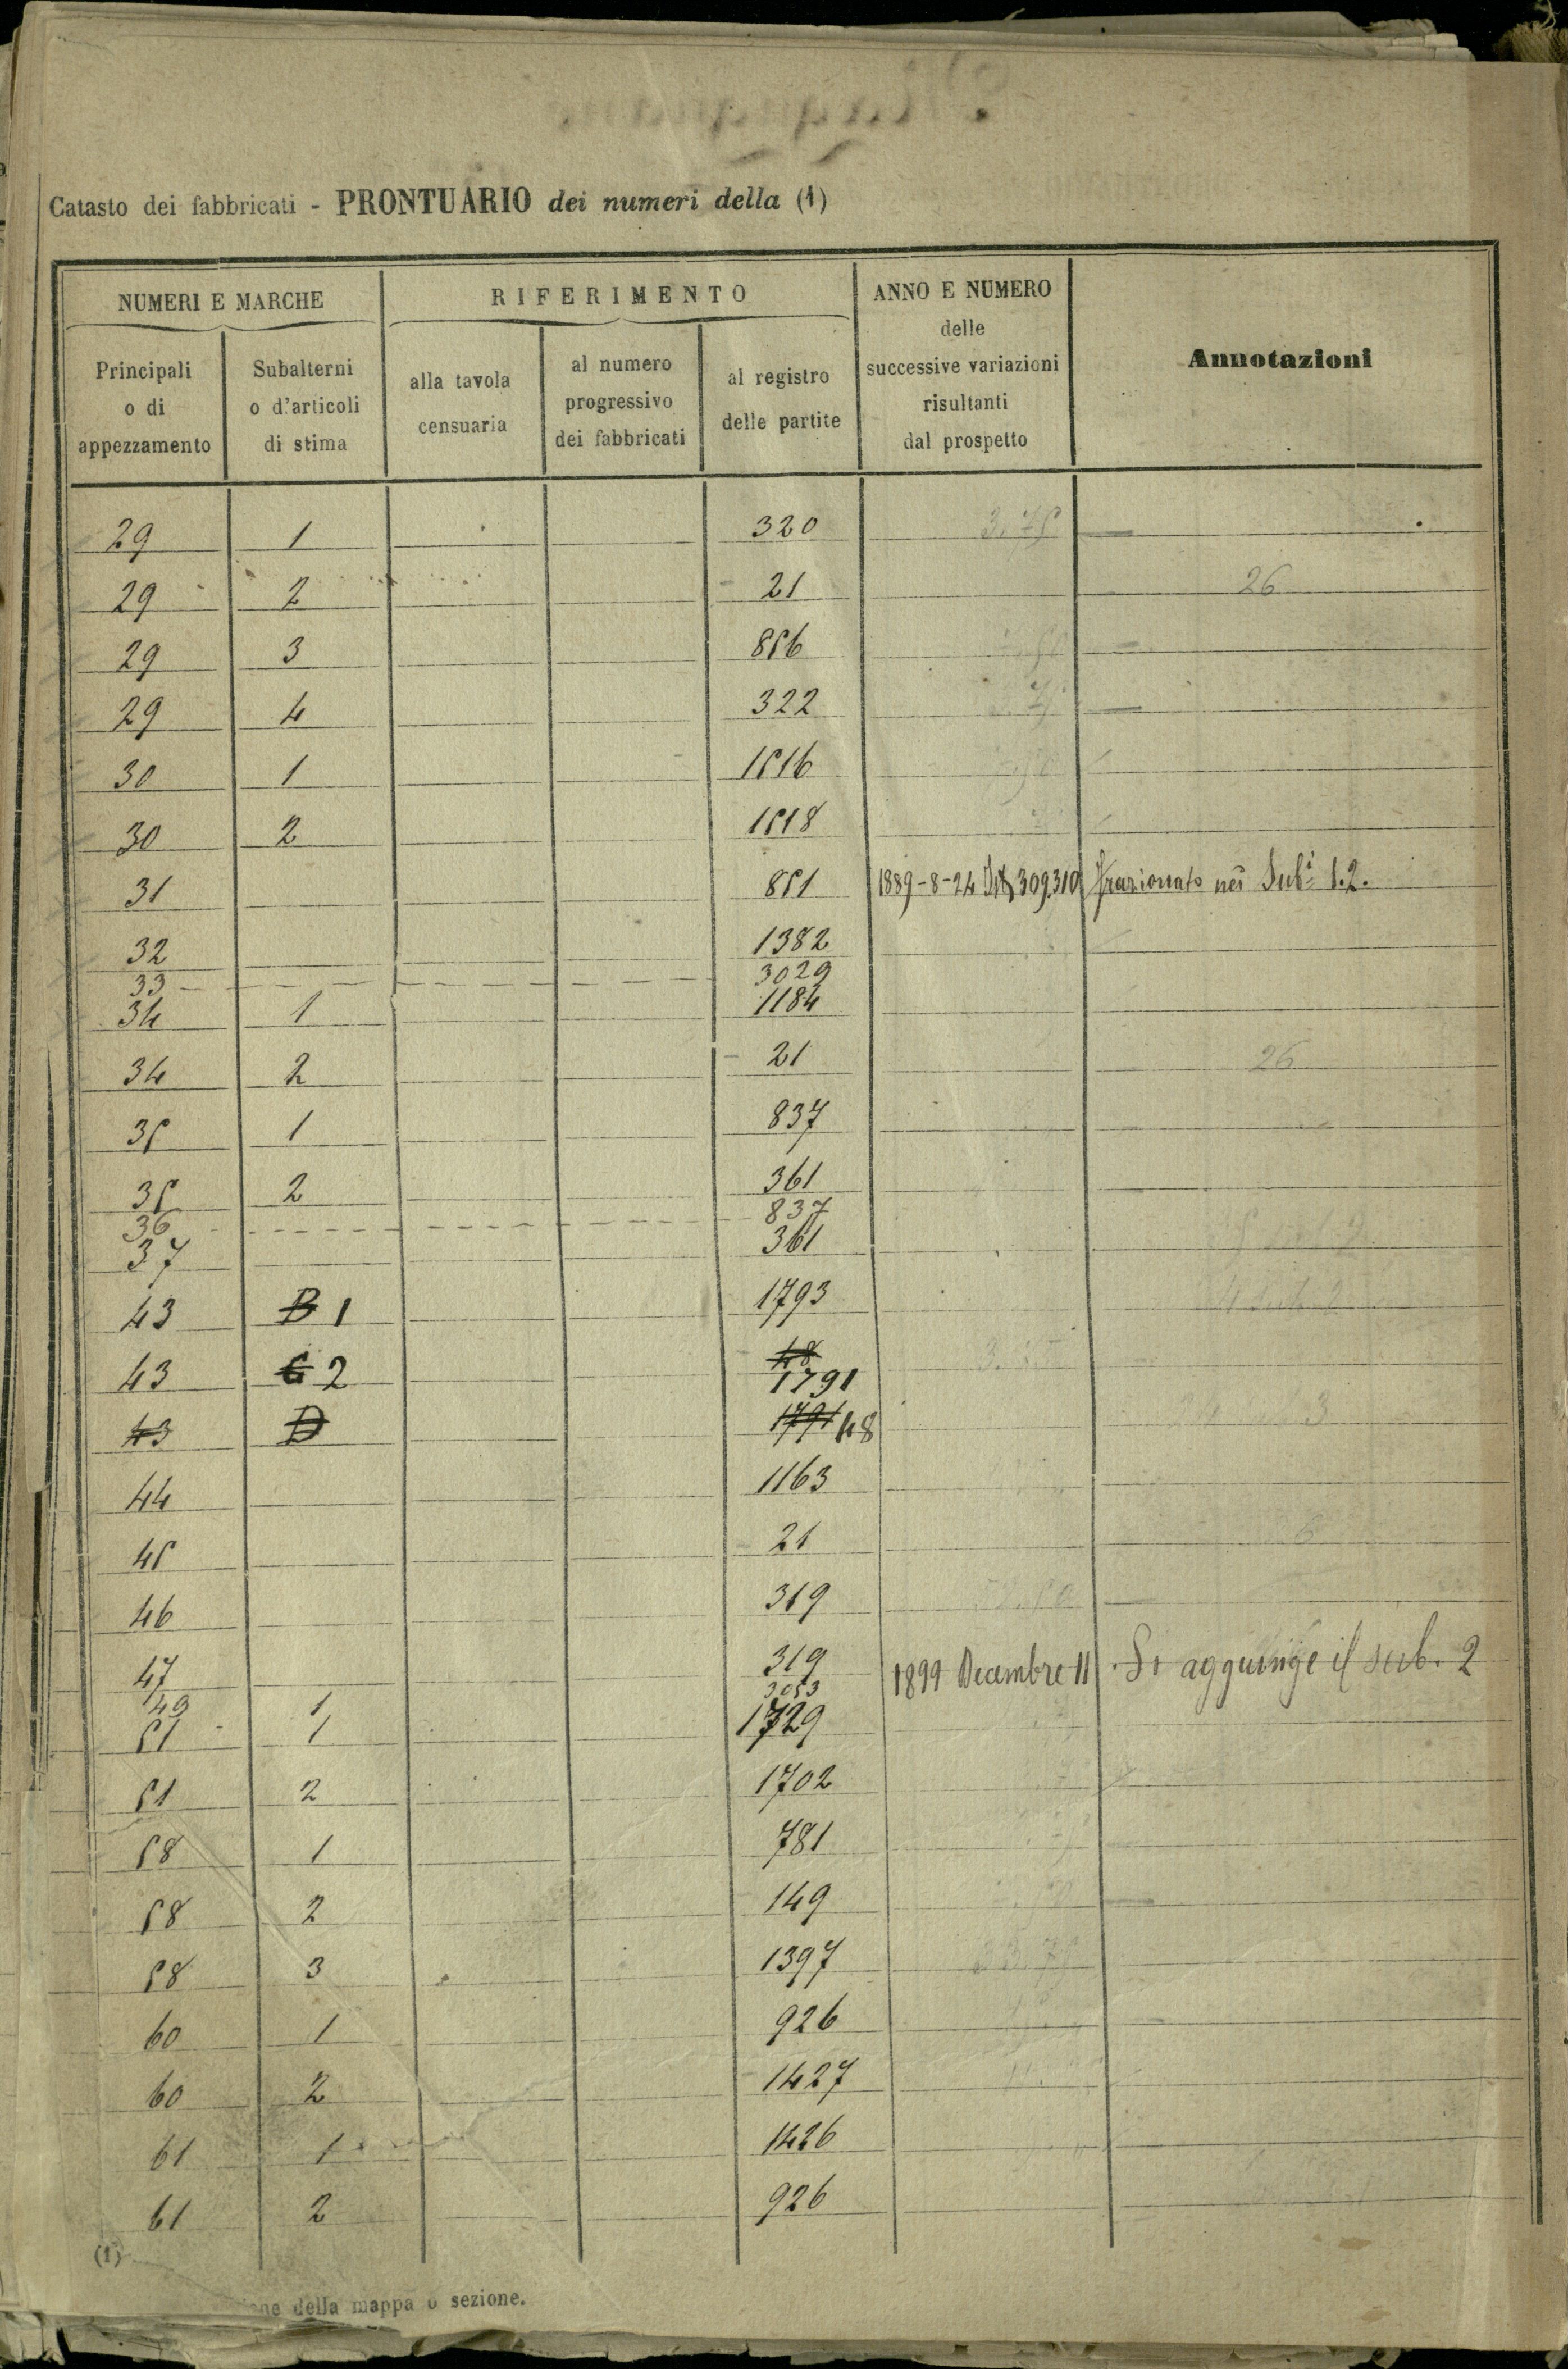 Catasto dei fabbricati - PRONTUARIO dei numeri della (1)
NUMERI E MARCHE
RIFERIMENTO
ANNO E NUMERO
delle
successive variazioni
risultanti
dal prospetto
Annotazioni
Principali
o di
appezzamento
Subalterni
o d'articoli
di stima
alla tavola
censuaria
al numero
progressivo
dei fabbricati
al registro
delle partite
29 1 320 3.75
29 2 21 26
29 3 856
29 4 322
30 1 1516
30 2 1518
31 851 1889-8-24 309.310 frazionato nei Subi 1.2.
32 1382
33 3029
34 1 1184
34 2 21 26
35 1 837
35 2 361
36 837
37 361
43 B 1 1793
43 C 2 48
1791
43 D 1791 48
44 1163
45 21
46 319
47 319 1899 Decembre 11 Si aggiunge il sub. 2
49 1 3053
51 1 1729
51 2 1702
58 1 781
58 2 149
58 3 1397
60 1 926
60 2 1427
61 1 1426
61 2 926
(1)
della mappa o sezione.